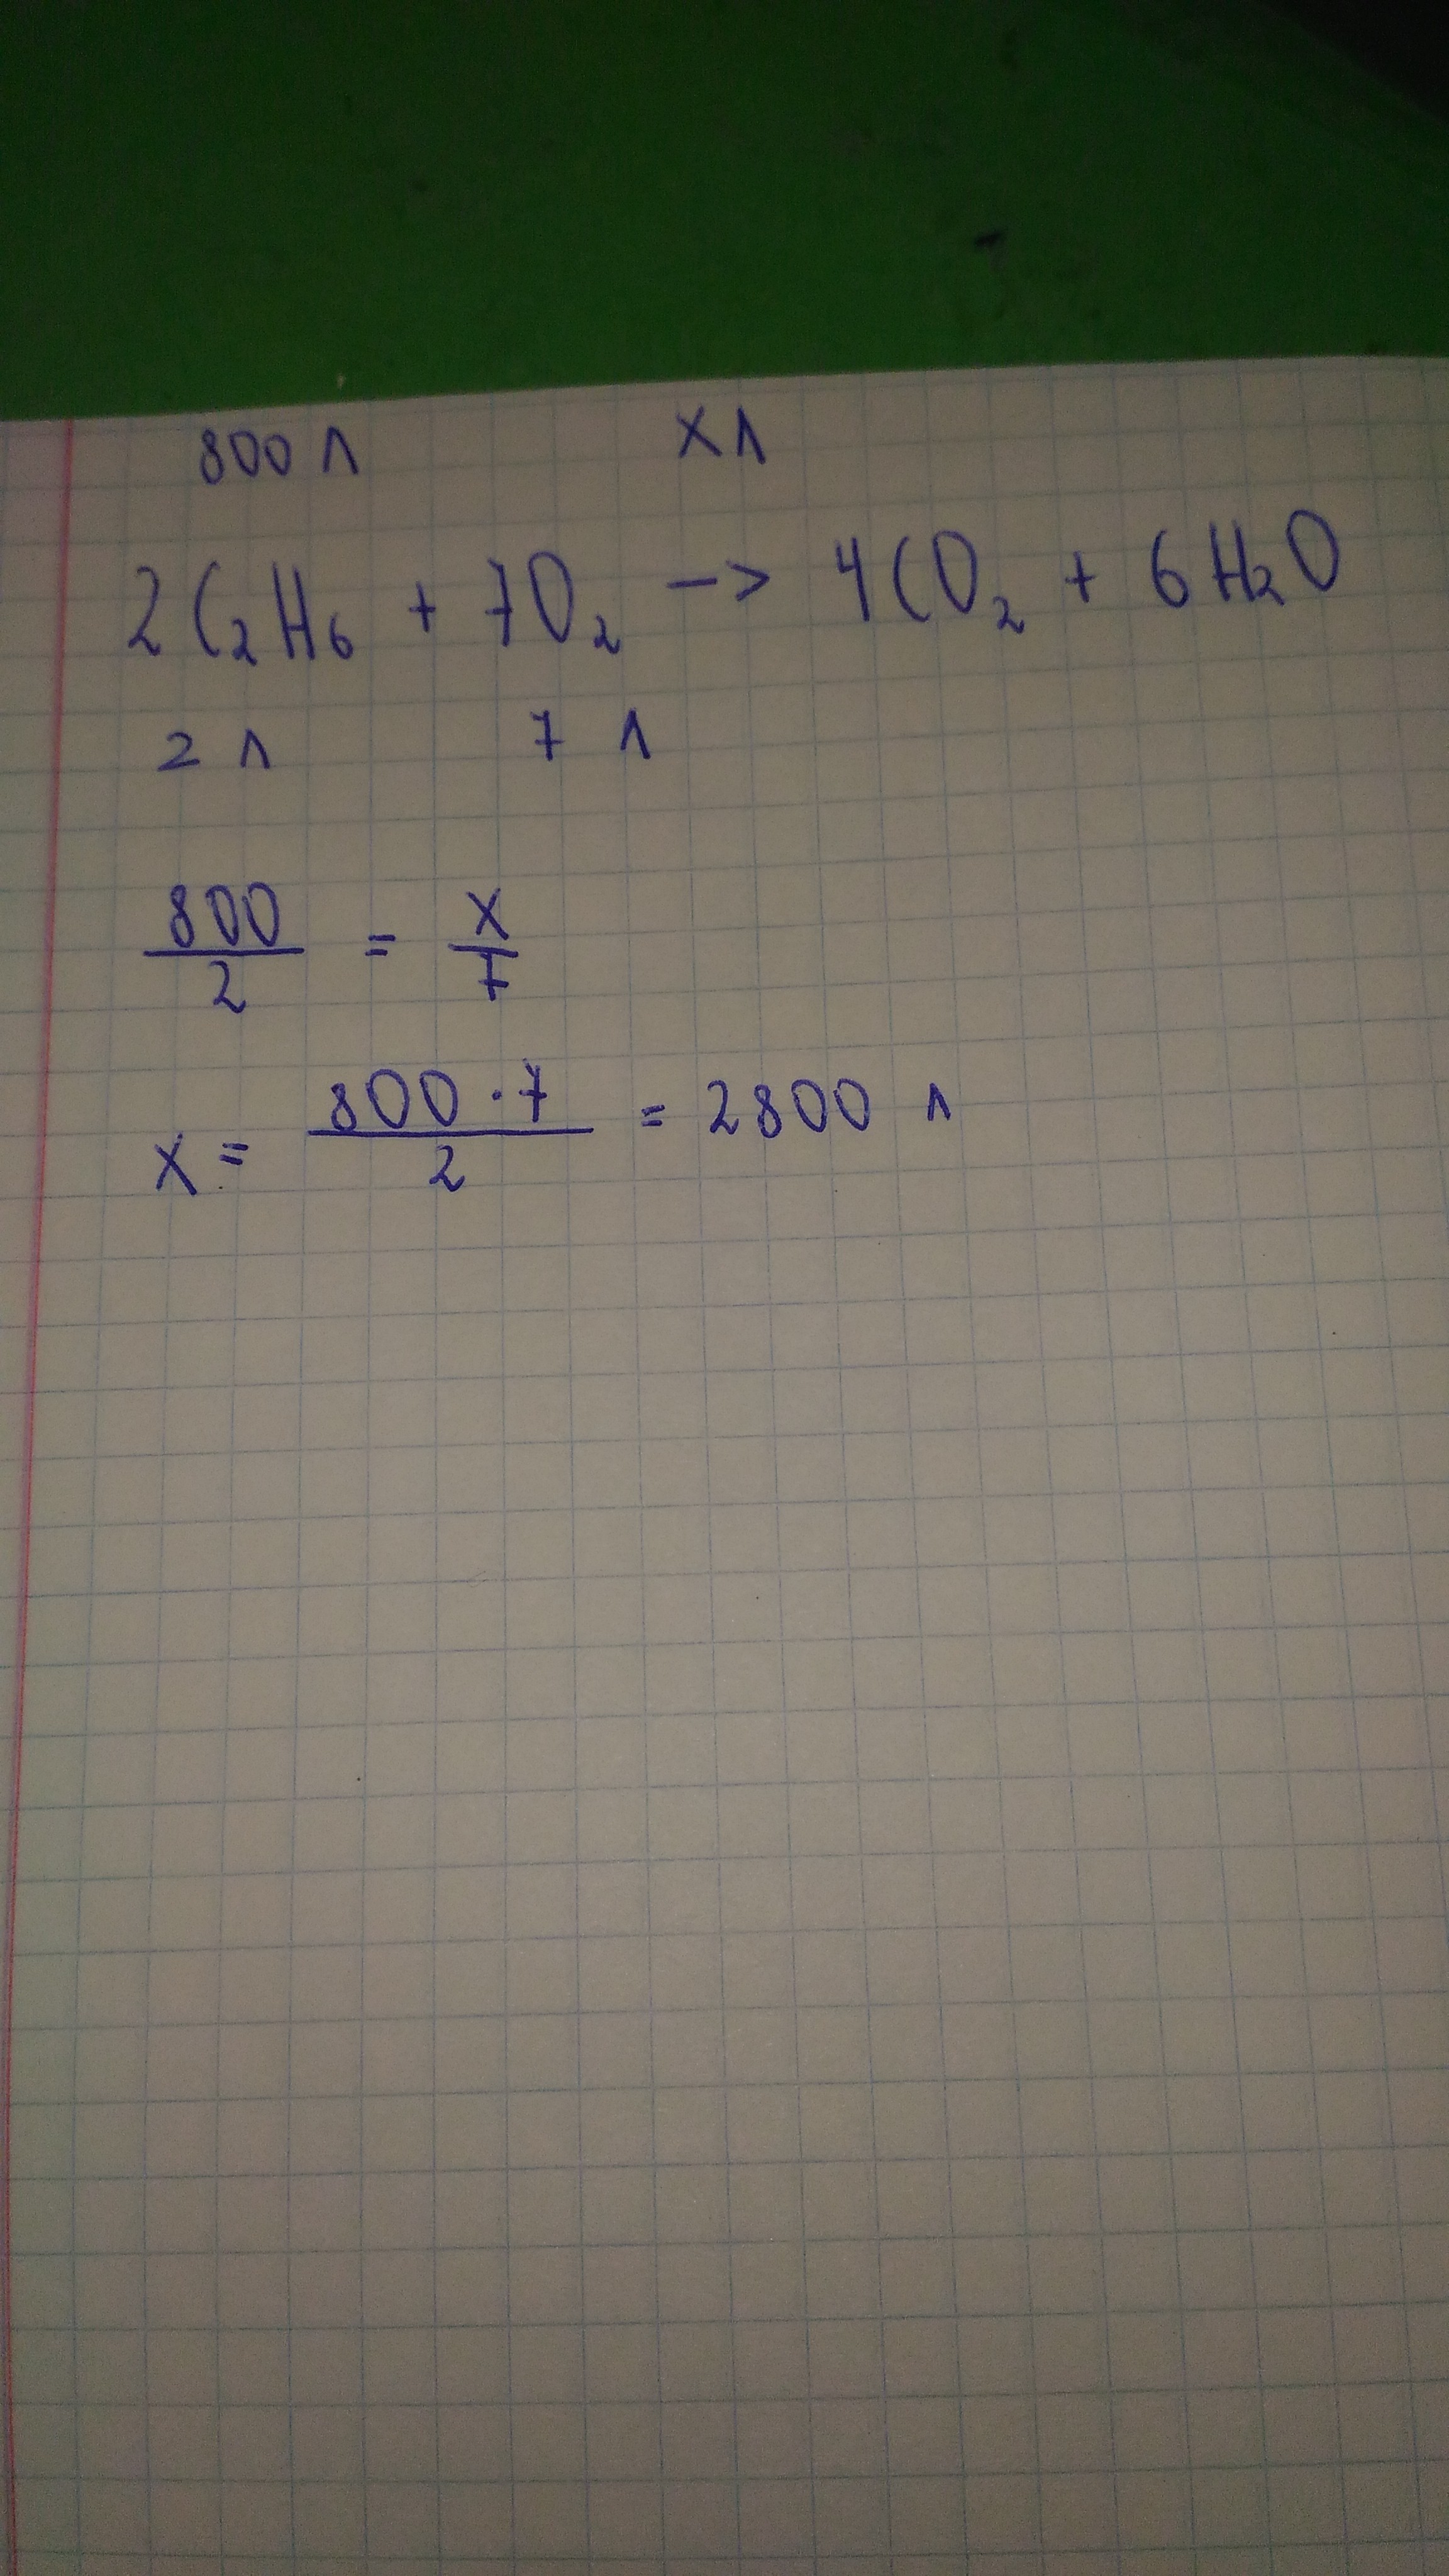 800 л x л
2C₂H₆ + 7O₂ -> 4CO₂ + 6H₂O
2 л 7 л
800/2 = x/7
x = 800·7/2 = 2800 л